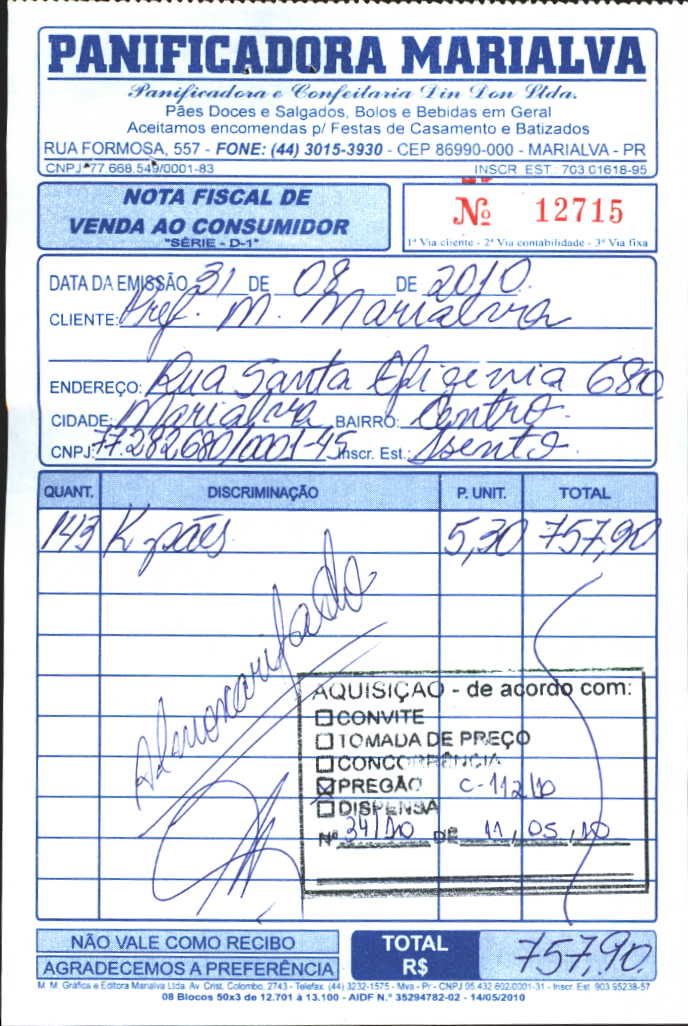 PANIFICADORA MARIALVA
Panificadora e Confeitaria Din Don Ltda.
Pães Doces e Salgados, Bolos e Bebidas em Geral
Aceitamos encomendas p/ Festas de Casamento e Batizados
RUA FORMOSA, 557 - FONE: (44) 3015-3930 - CEP 86990-000 - MARIALVA - PR
CNPJ 77.668.549/0001-83 INSCR. EST.: 703.01618-95
NOTA FISCAL DE
VENDA AO CONSUMIDOR
"SÉRIE - D-1"
Nº 12715
1ª Via cliente - 2ª Via contabilidade - 3ª Via fixa
DATA DA EMISSÃO 31 DE 08 DE 2010
CLIENTE: Pref. M. Marialva
ENDEREÇO: Rua Santa Efigenia 680
CIDADE: Marialva BAIRRO: Centro
CNPJ: 77.282.680/0001-45 Inscr. Est.: Isento
QUANT. DISCRIMINAÇÃO P. UNIT. TOTAL
143 K pães 5,30 757,90
Almoxarifado
AQUISIÇÃO - de acordo com:
CONVITE
TOMADA DE PREÇO
CONCORRÊNCIA
PREGÃO C-112/10
DISPENSA
Nº 34/10 DE 11/05/10
NÃO VALE COMO RECIBO
AGRADECEMOS A PREFERÊNCIA
TOTAL R$ 757,90
M. M. Gráfica e Editora Marialva Ltda. Av. Crist. Colombo, 2743 - Telefax: (44) 3232-1575 - Mva - Pr - CNPJ 05.432.602/0001-31 - Inscr. Est. 903.95238-57
08 Blocos 50x3 de 12.701 à 13.100 - AIDF N.º 35294782-02 - 14/05/2010